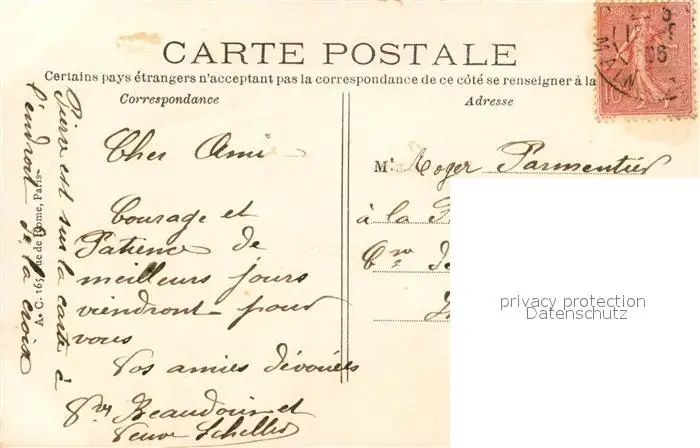 CARTE POSTALE
Certains pays étrangers n'acceptent pas la correspondance de ce côté se renseigner à la
Correspondance
Adresse
Cher Ami
Courage et
Patience de
meilleurs jours
viendront pour
vous
Vos amies dévouées
Beaudouin et
Veuve
Mr. Roger Parmentier
à la
Pierre est sur la carte à
l'endroit de la croix
A. C. 165 rue de Rome, Paris
10
privacy protection
Datenschutz